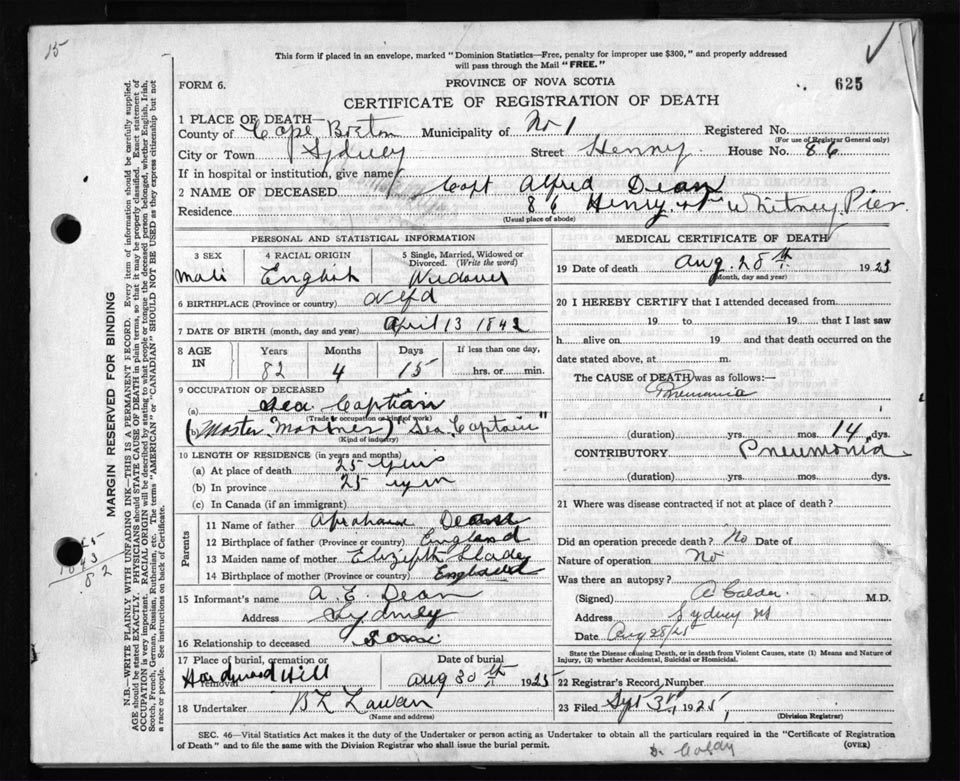 15
This form if placed in an envelope, marked "Dominion Statistics—Free, penalty for improper use $300," and properly addressed
will pass through the Mail "FREE."
FORM 6.
PROVINCE OF NOVA SCOTIA
625
CERTIFICATE OF REGISTRATION OF DEATH
1 PLACE OF DEATH—
County of Cape Breton Municipality of No 1 Registered No.
(For use of Registrar General only)
City or Town Sydney Street Henry. House No. 86
If in hospital or institution, give name
2 NAME OF DECEASED Capt Alfred Dean
Residence 86 Henry. st Whitney Pier
(Usual place of abode)
PERSONAL AND STATISTICAL INFORMATION
3 SEX
Male
4 RACIAL ORIGIN
English
5 Single, Married, Widowed or
Divorced. (Write the word)
Widower
6 BIRTHPLACE (Province or country) Nfld
7 DATE OF BIRTH (month, day and year) April 13 1842
8 AGE IN
Years Months Days If less than one day,
82 4 15 hrs. or min.
9 OCCUPATION OF DECEASED
(a) Sea Captian
(Trade or occupation or kind of work)
(b) (Master Mariner) "Sea Captain"
(Kind of industry)
10 LENGTH OF RESIDENCE (in years and months)
(a) At place of death 25 years
(b) In province 25 yrs
(c) In Canada (if an immigrant)
Parents
11 Name of father Abraham Dean
12 Birthplace of father (Province or country) England
13 Maiden name of mother Elizabeth
14 Birthplace of mother (Province or country) England
15 Informant's name A. E. Dean
Address Sydney
16 Relationship to deceased Son
17 Place of burial, cremation or
removal Hardwood Hill
Date of burial
Aug 30th 1925
18 Undertaker
(Name and address)
MEDICAL CERTIFICATE OF DEATH
19 Date of death Aug. 28th 1925
(Month, day and year)
20 I HEREBY CERTIFY that I attended deceased from
19 to 19 that I last saw
h alive on 19 and that death occurred on the
date stated above, at m.
The CAUSE of DEATH was as follows:—
Pneumonia
(duration) yrs. mos. 14 dys.
CONTRIBUTORY Pneumonia
(duration) yrs. mos. dys.
21 Where was disease contracted if not at place of death?
Did an operation precede death? No Date of
Nature of operation No
Was there an autopsy?
(Signed) A Calder M.D.
Address Sydney NS
Date Aug 28/25
State the Disease causing Death, or in death from Violent Causes, state (1) Means and Nature of
Injury, (2) whether Accidental, Suicidal or Homicidal.
22 Registrar's Record, Number
23 Filed Sept 3rd, 1925,
(Division Registrar)
SEC. 46—Vital Statistics Act makes it the duty of the Undertaker or person acting as Undertaker to obtain all the particulars required in the "Certificate of Registration
of Death" and to file the same with the Division Registrar who shall issue the burial permit.
(OVER)
MARGIN RESERVED FOR BINDING
N.B.—WRITE PLAINLY, WITH UNFADING INK—THIS IS A PERMANENT RECORD. Every item of information should be carefully supplied.
AGE should be stated EXACTLY. PHYSICIANS should STATE CAUSE OF DEATH in plain terms, so that it may be properly classified. Exact statement of
OCCUPATION is very important. RACIAL ORIGIN will be described by stating to what people or tongue the deceased person belonged, whether English, Irish,
Scotch, French, German, Russian, Ruthenian, etc. The terms "AMERICAN" or "CANADIAN" SHOULD NOT BE USED as they express citizenship but not
a race or people. See instructions on back of Certificate.
82